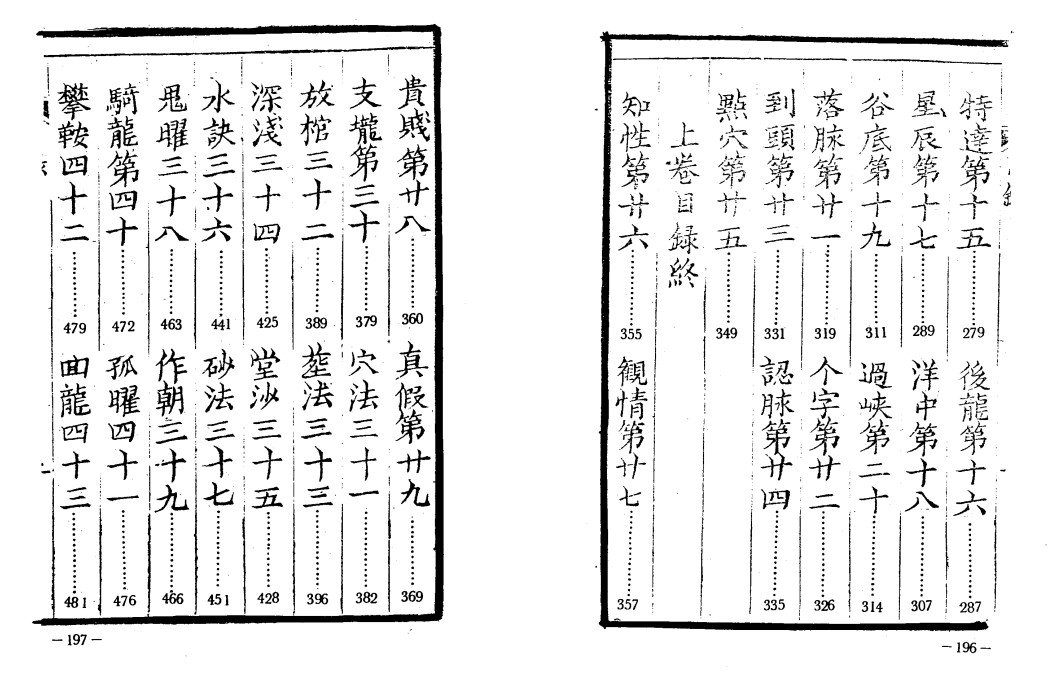 特達第十五……279 後龍第十六……287
星辰第十七……289 洋中第十八……307
谷底第十九……311 過峡第二十……314
落脉第廿一……319 个字第廿二……326
到頭第廿三……331 認脉第廿四……335
點穴第廿五……349
上卷目録終
知性第廿六……355 観情第廿七……357
—196—
貴賎第廿八……360 真假第廿九……369
支壠第三十……379 穴法三十一……382
放棺三十二……389 葬法三十三……396
深淺三十四……425 堂沙三十五……428
水訣三十六……441 砂法三十七……451
鬼曜三十八……463 作朝三十九……466
騎龍第四十……472 孤曜四十一……476
攀鞍四十二……479 回龍四十三……481
—197—